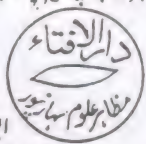 دار الافتاء
مظاہر علوم سہارنپور